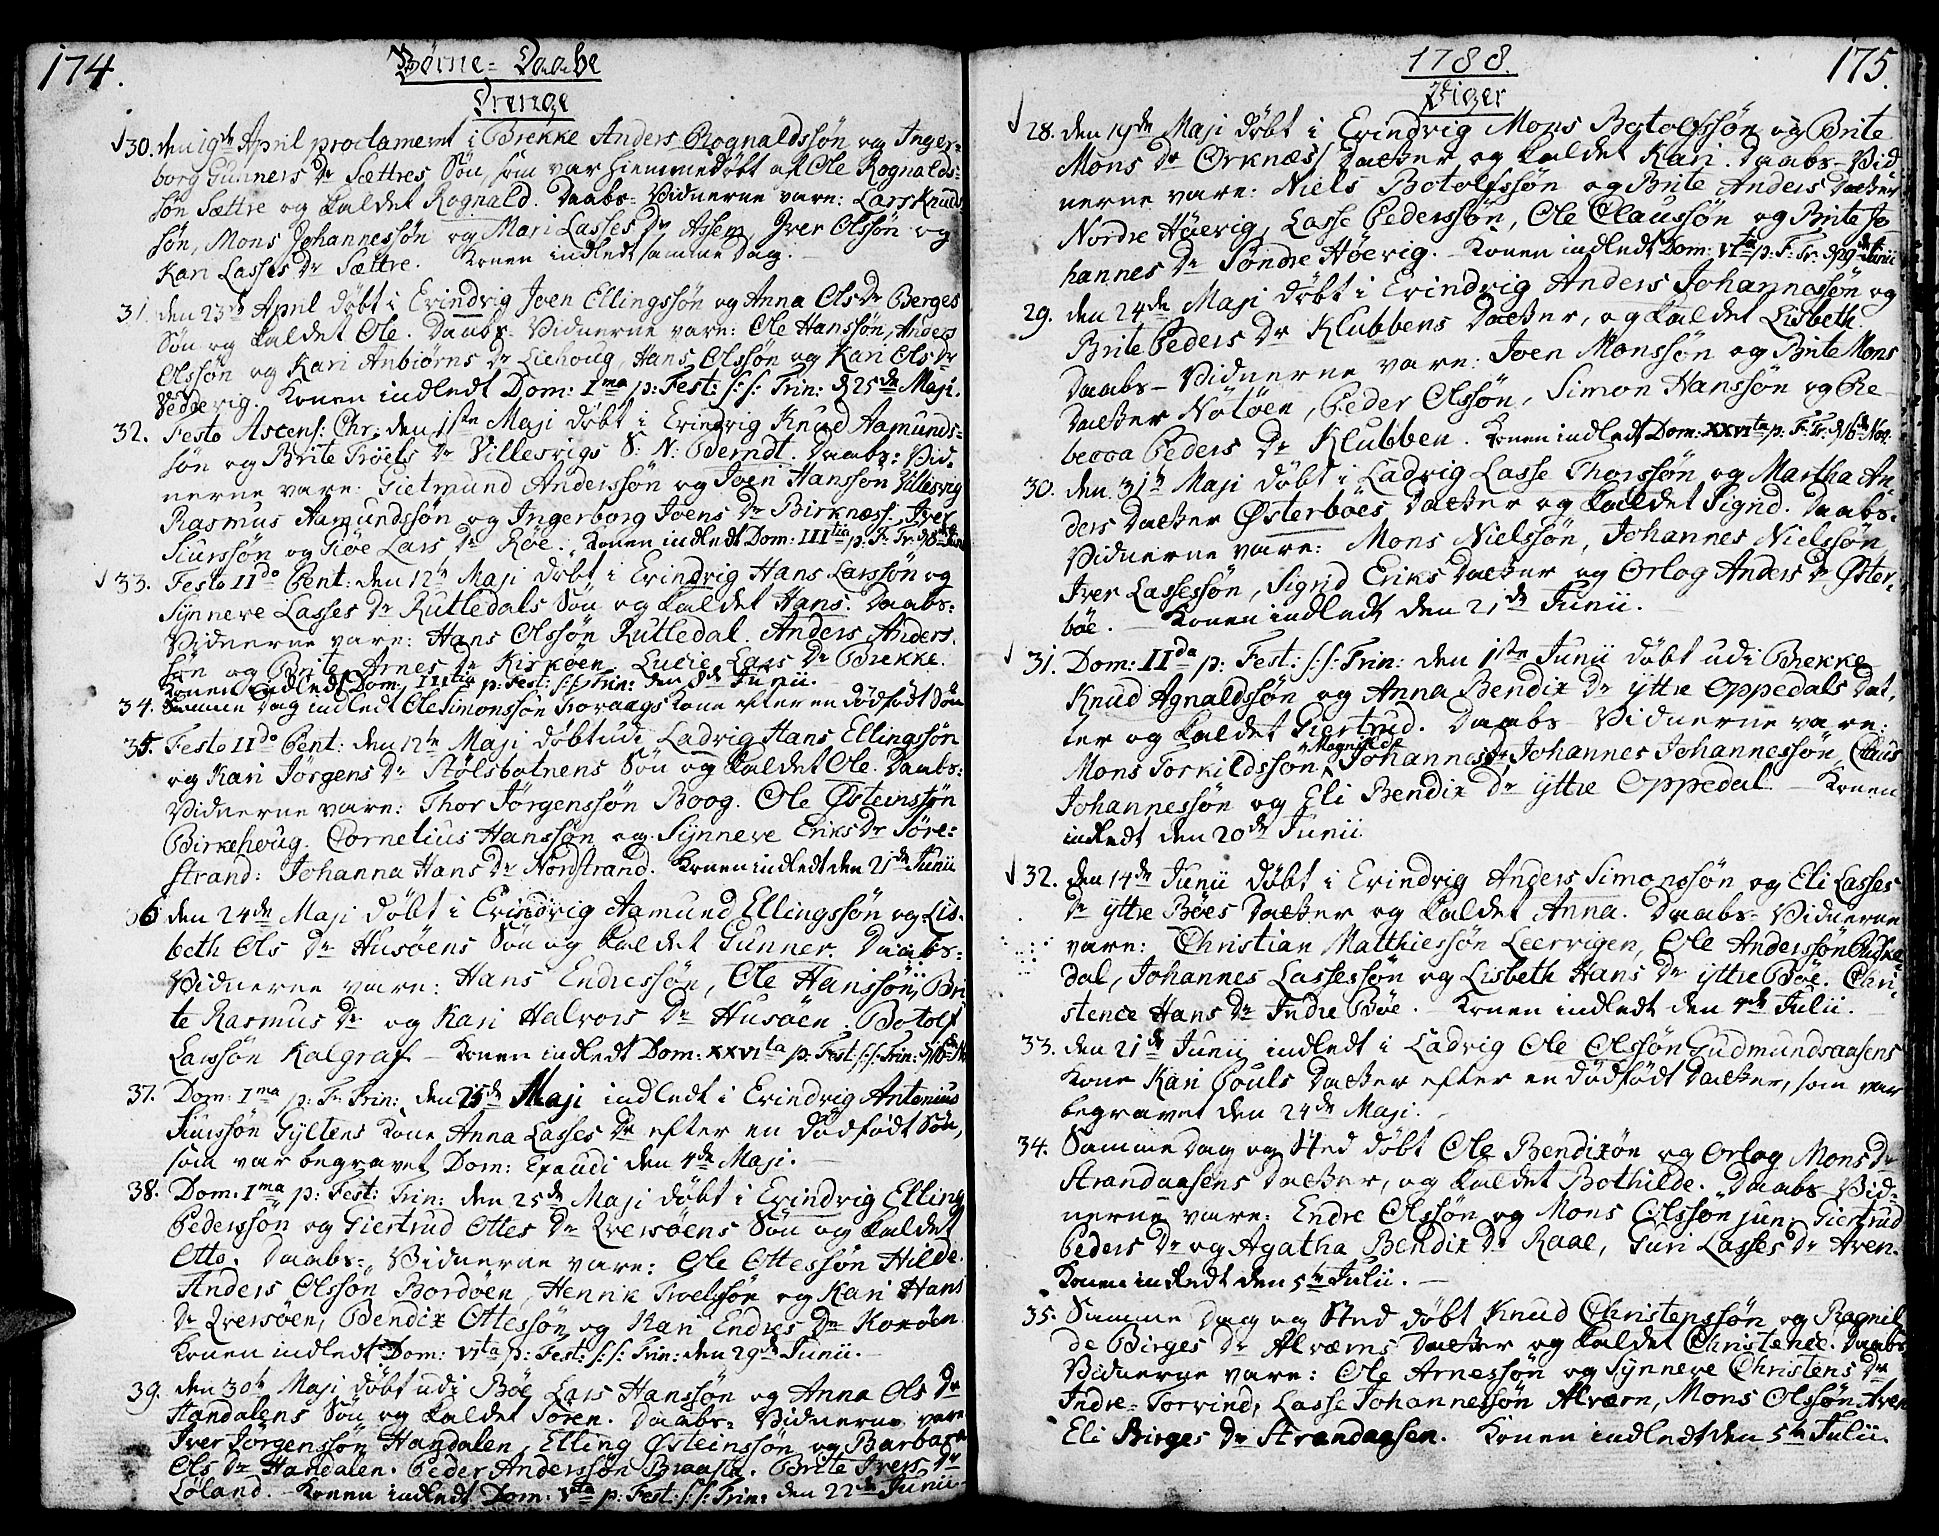 174.
Børne-Daabe
Drenge
30. den 19de April proclameret i Brekke Anders Rognaldssøn og Inger-
borg Gunners Dr Sættres Søn, som var hiemmedøbt af Ole Rognalds-
søn Sættre og kaldet Rognald. Daabs-Vidnerne vare: Lars Knuds
søn, Mons Johannessøn og Mari Lasses Dr Assem, Iver Olssøn og
Kari Lasses Dr Sættre. Konen indledt samme Dag.
31. den 23de April døbt i Evindvig Joen Ellingssøn og Anna Ols Dr Berges
Søn og kaldet Ole. Daabs-Vidnerne vare: Ole Hanssøn, Anders
Olssøn og Kari Anbiørns Dr Liehoug, Hans Olssøn og Kari Ols Dr
Konen indledt Dom: Ima p: Fest: S:S: Trin: d 25de Maji.
32. Festo Ascens: Chr: den 1ste Maji døbt i Evindvig Knud Aamunds-
søn og Brite Troels Dr Villesvigs S: N: Berndt. Daabs-Vid-
nerne vare: Gietmund Anderssøn og Joen Hanssøn Villesvig
Rasmus Aamundssøn og Ingerborg Joens Dr Birknæss, Iver
Siurssøn og Lars Dr Røe. Konen indledt Dom: IIItia p: F: Tr: d 8de Junii
33. Festo IIdo Pent: den 12te Maji døbt i Evindvig Hans Larssøn og
Synneve Lasses Dr Rutledals Søn og kaldet Hans. Daabs-
Vidnerne vare: Hans Olssøn Rutledal. Anders Anders-
søn og Brite Arnes Dr Kirkøen. Lucie Lars Dr Brekke.
Konen indledt Dom: IIItia p: Fest: S:S: Trin: den 8de Junii.
34. Samme Dag indledt Ole Simonssøn Kone efter en dødfødt Søn
35. Festo IIdo Pent: den 12te Maji døbt udi Ladvig Hans Ellingssøn
og Kari Jørgens Dr Stølsbotnens Søn og kaldet Ole. Daabs-
Vidnerne vare: Thor Jørgenssøn Boog. Ole Østeinssøn
Birkehoug. Cornelius Hanssøn og Synneve Eriks Dr Søre-
strand: Johanna Hans Dr Nordstrand. Konen indledt den 21de Junii
36 den 24de Maji døbt i Evindvig Aamund Ellingssøn og Lis-
beth Ols Dr Husøens Søn og kaldet Gunner. Daabs-
Vidnerne vare: Hans Endressøn, Ole Hanssøn, Bri
te Rasmus Dr og Kari Halvors Dr Husøen. Botolf
Larssøn Kalgraf - Konen indledt Dom: XXVIta p: Fest: S:S: Trin:
37. Dom: Ima p: F: Trin: den 25de Maji indledt i Evindvig Antonius
Siurssøn Gyltens Kone Anna Lasses Dr efter en dødfødt Søn,
som var begravet Dom: Exaudi den 4de Maji.
38. Dom: Ima p: Fest: Trin: den 25de Maji døbt i Evindvig Elling
Pederssøn og Giertrud Ottes Dr Qversøens Søn og kaldet
Otto. Daabs-Vidnerne vare: Ole Ottessøn Hilde.
Anders Olssøn Bordøen, Henrik Troelssøn og Kari Hans
Dr Qversøen, Bendix Ottessøn og Kari Endres Dr
Konen indledt Dom: VIta p: Fest: S:S: Trin: den 29de Junii.
39. den 30te Maji døbt udi Bøe Lars Hanssøn og Anna Ols Dr
Handalens Søn og kaldet Søren. Daabs-Vidnerne vare
Iver Jørgenssøn Handalen, Elling Østeinssøn og Barbara
Ols Dr Handalen. Peder Anderssøn. Brite Ivers Dr
Løland. - Konen indledt Dom: Vta p: Fest: S:S: Trin: den 22de Junii
1788.
175
Piger
28. den 19de Maji døbt i Evindvig Mons Botolfssøn og Brite
Mons Dr Ørknæss Datter og kaldet Kari. Daabs-Vid
nerne vare: Niels Botolfssøn og Brite Anders Datter
Nordre Høevig, Lasse Pederssøn, Ole Claussøn og Brite Jo
hannes Dr Søndre Høevig. - Konen indledt Dom: VIta p: F: Tr: d 29de Junii
29. den 24de Maji døbt i Evindvig Anders Johannessøn og
Brite Peders Dr Klubbens Datter, og kaldet Lisbeth.
Daabs-Vidnerne vare: Joen Monssøn og Brite Mons
Datter Nötöen, Peder Olssøn, Simon Hanssøn og Re-
becca Peders Dr Klubben. Konen indledt Dom: XXVIta p: F: Tr: d 16de Nov.
30. den 31te Maji døbt i Ladvig Lasse Thorssøn og Martha An
ders Datter Østerbøes Datter og kaldet Sigrid. Daabs-
Vidnerne vare: Mons Nielssøn, Johannes Nielssøn
Iver Lassessøn, Sigrid Eriks Datter og Orlog Anders Dr Øster-
bøe. - Konen indledt den 21de Junii.
31. Dom: IIda p: Fest: S:S: Trin: den 1ste Junii døbt udi Brekke
Knud Agnaldssøn og Anna Bendix Dr yttre Oppedals Dat-
ter og kaldet Giertrud. Daabs-Vidnerne vare:
Mons Torkildssøn, Magnilde Johannes Dr Johannes Johannessøn, Claus
Johannessøn og Eli Bendix Dr yttre Oppedal. - Konen
indledt den 20de Junii
32. den 14de Junii døbt i Evindvig Anders Simonssøn og Eli Lasses
Dr yttre Bøes Datter og kaldet Anna. Daabs-Vidnerne
vare: Christian Matthiessøn Leervigen, Ole Anderssøn
dal, Johannes Lassessøn og Lisbeth Hans Dr yttre Bøe. Chri-
stence Hans Dr Indre Bøe. - Konen indledt den Julii.
33. den 21de Junii indledt i Ladvig Ole Olssøn Gudmundsaasens
Kone Kari Pouls Datter efter en dødfødt Datter, som var
begravet den 24de Maji.
34. Samme Dag og Sted døbt Ole Bendixøn og Orlog Mons Dr
Strandaasens Datter, og kaldet Bothilde. Daabs Vid-
nerne vare: Endre Olssøn og Mons Olssøn jun, Giertrud
Peders Dr og Agatha Bendix Dr Raae, Guri Lasses Dr Aven.
Konen indledt den 5te Julii.
35. Samme Dag og Sted døbt Knud Christenssøn og Ragnil
de Birges Dr Alværns Datter og kaldet Christence. Daabs
Vidnerne vare: Ole Arnessøn og Synneve Christens Dr
Indre-Torvind, Lasse Johannessøn Alværn, Mons Olssøn Aven
Eli Birges Dr Strandaasen. Konen indledt den 5te Julii.